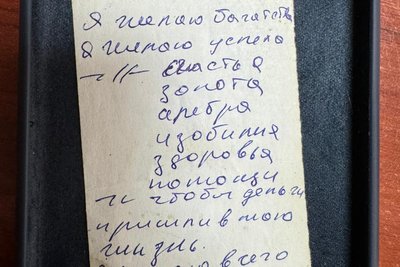 Я желаю богатства
Я желаю успеха
—//— счастья
золота
серебра
изобилия
здоровья
помощи
—//— чтобы деньги
пришли в мою
жизнь.
всего